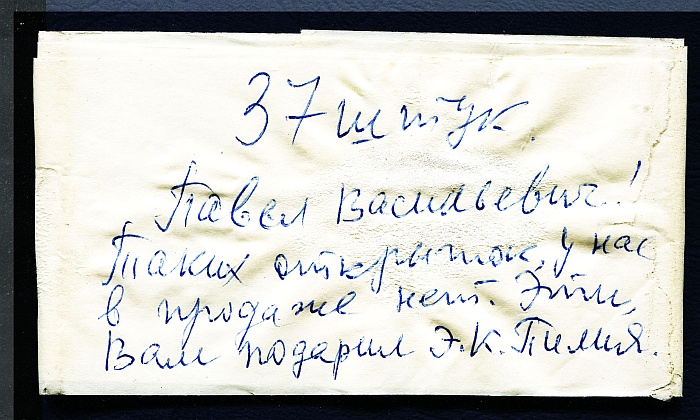 37 штук.
Павел Васильевич!
Таких открыток, у нас
в продаже нет. Эти,
Вам подарил Э.К. Пилия.